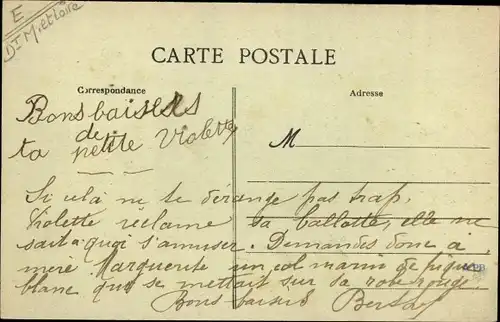 E
Dt Militaire
CARTE POSTALE
Correspondance
Adresse
M
Bons baisers
de
ta petite Violette
Si cela ne te dérange pas trap,
Violette réclame sa ballotte, elle ne
sait à quoi s'amuser. Demandes donc à
mère Marguerite un col marin de pique
blanc que se mettait sur sa robe rouge.
Bons baisers Berthe